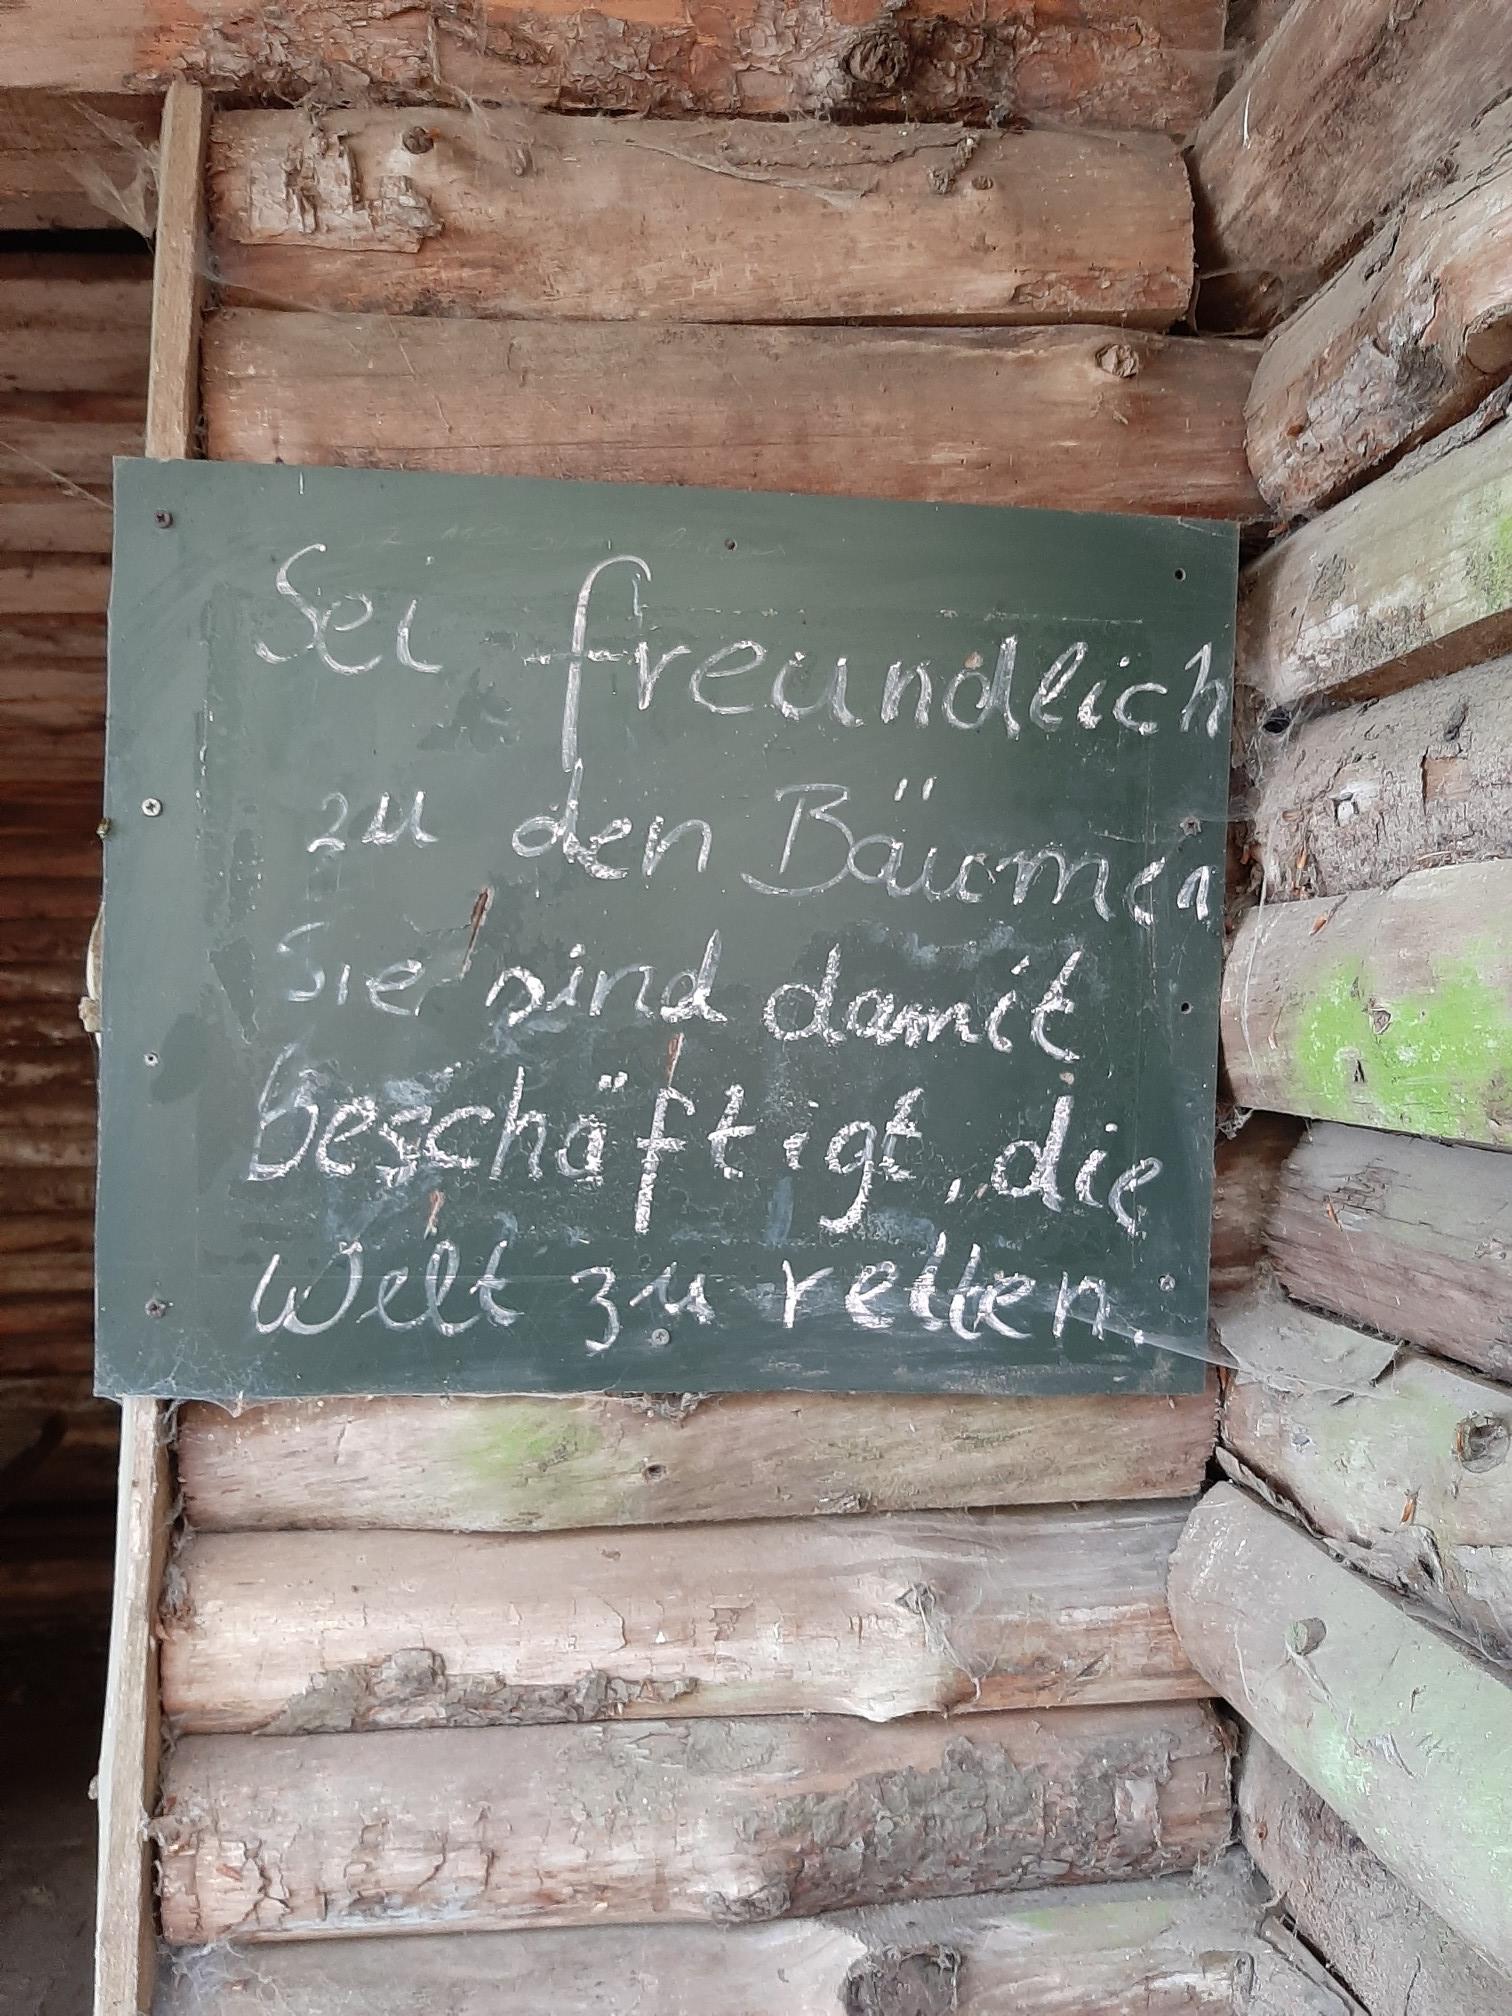 Sei freundlich
zu den Bäumen
Sie sind damit
beschäftigt, die
Welt zu retten.